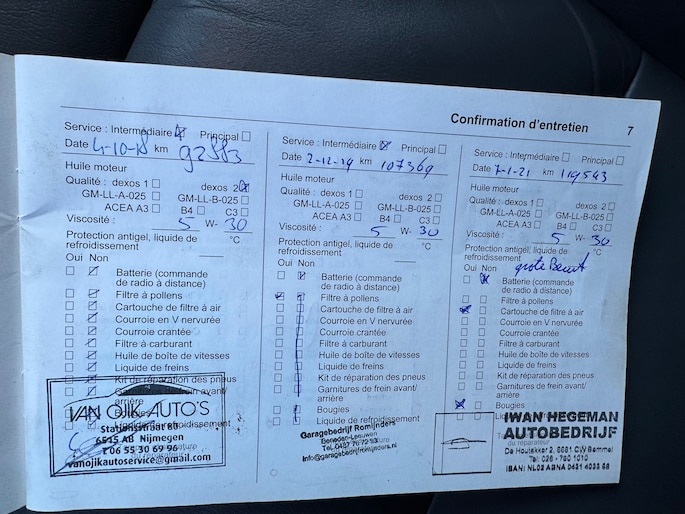 Confirmation d'entretien 7
Service : Intermédiaire Principal
Date 4-10-18 km 92883
Huile moteur
Qualité : dexos 1 dexos 2
GM-LL-A-025 GM-LL-B-025
ACEA A3 B4 C3
Viscosité : 5 W- 30
Protection antigel, liquide de
refroidissement °C
Oui Non
Batterie (commande
de radio à distance)
Filtre à pollens
Cartouche de filtre à air
Courroie en V nervurée
Courroie crantée
Filtre à carburant
Huile de boîte de vitesses
Liquide de freins
Kit de réparation des pneus
de frein avant/
arrière
VAN OIJK AUTO'S
Stationsstraat
6515 AB Nijmegen
T 06 55 30 69 96
vanoijkautoservice@gmail.com
Service : Intermédiaire Principal
Date 2-12-19 km 107369
Huile moteur
Qualité : dexos 1 dexos 2
GM-LL-A-025 GM-LL-B-025
ACEA A3 B4 C3
Viscosité : 5 W- 30
Protection antigel, liquide de
refroidissement °C
Oui Non
Batterie (commande
de radio à distance)
Filtre à pollens
Cartouche de filtre à air
Courroie en V nervurée
Courroie crantée
Filtre à carburant
Huile de boîte de vitesses
Liquide de freins
Kit de réparation des pneus
Garnitures de frein avant/
arrière
Bougies
Liquide de refroidissement
Garagebedrijf Romijnders
Beneden-Leeuwen
info@garagebedrijfromijnders.nl
Service : Intermédiaire Principal
Date 7-1-21 km 119543
Huile moteur
Qualité : dexos 1 dexos 2
GM-LL-A-025 GM-LL-B-025
ACEA A3 B4 C3
Viscosité : 5 W- 30
Protection antigel, liquide de
refroidissement °C
Oui Non grote Beurt
Batterie (commande
de radio à distance)
Filtre à pollens
Cartouche de filtre à air
Courroie en V nervurée
Courroie crantée
Filtre à carburant
Huile de boîte de vitesses
Liquide de freins
Kit de réparation des pneus
Garnitures de frein avant/
arrière
Bougies
IWAN HEGEMAN
AUTOBEDRIJF
De Houtakker 2, 6681 CW Bemmel